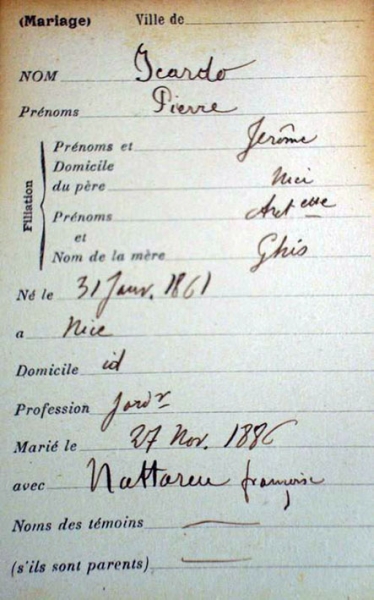 (Mariage) Ville de
NOM Icardo
Prénoms Pierre
Filiation
Prénoms et Jerôme
Domicile
du père Nice
Prénoms Antette
et
Nom de la mère Ghis
Né le 31 Janv. 1861
a Nice
Domicile id
Profession Jardr
Marié le 27 Nov. 1886
avec Nattareu françoise
Noms des témoins —
(s'ils sont parents) —